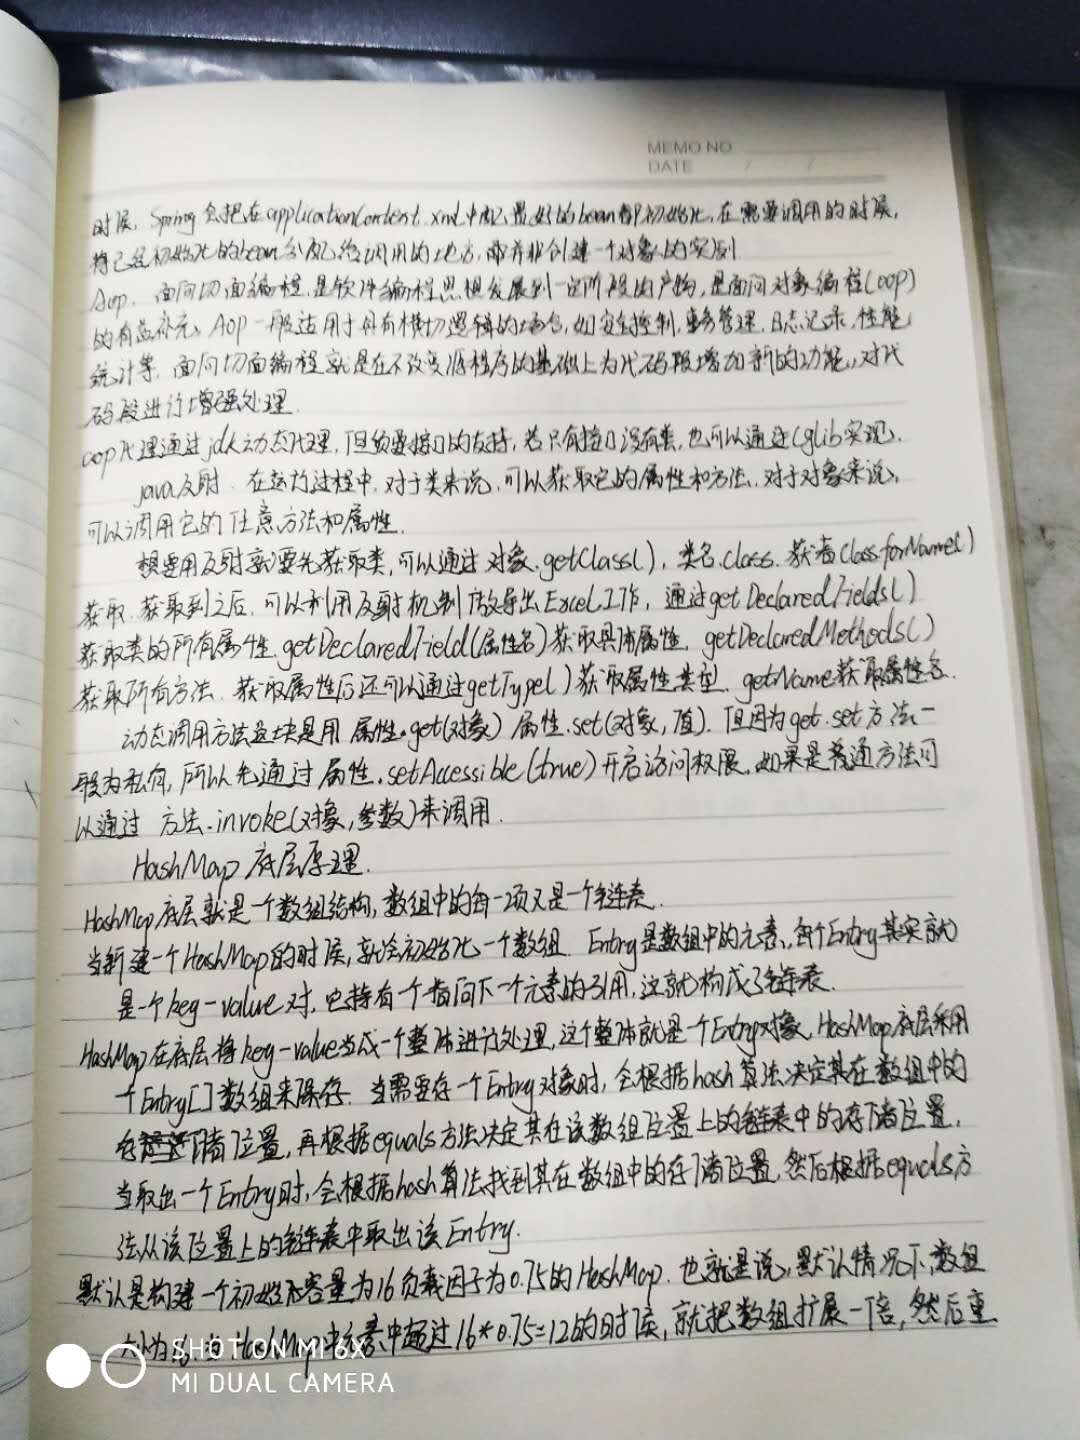 MEMO NO
DATE / /
时候, Spring会把在applicationContent.xml中配置好的bean都初始化, 在需要调用的时候,
将已经初始化的bean分配给调用的地方, 而并非创建一个对象的实例
Aop. 面向切面编程, 是软件编程思想发展到一定阶段的产物, 是面向对象编程(oop)
的有益补充, AOP一般适用于具有横切逻辑的场合, 如安全控制, 事务管理, 日志记录, 性能
统计等, 面向切面编程就是在不改变源程序的基础上为代码段增加新的功能, 对代
码段进行增强处理.
aop代理通过jdk动态代理, 但须要接口的支持, 若只有接口没有类, 也可以通过Cglib实现.
java反射. 在运行过程中, 对于类来说, 可以获取它的属性和方法, 对于对象来说,
可以调用它的任意方法和属性.
想要用反射就要先获取类, 可以通过 对象.getClass(), 类名.class. 获者Class.forName()
获取. 获取到之后, 可以利用反射机制做导出Excel工作, 通过getDeclaredFields()
获取类的所有属性. getDeclaredField(属性名)获取具体属性. getDeclaredMethods()
获取所有方法. 获取属性后还可以通过getType()获取属性类型. getName获取属性名.
动态调用方法这块是用 属性.get(对象) 属性.set(对象, 值). 但因为get.set方法一
般为私有, 所以先通过 属性.setAccessible(true)开启访问权限. 如果是普通方法可
以通过 方法.invoke(对象, 参数)来调用.
HashMap底层原理.
HashMap底层就是一个数组结构, 数组中的每一项又是一个链表.
当新建一个HashMap的时候, 就会初始化一个数组. Entry是数组中的元素, 每个Entry其实就
是一个key-value对, 也持有一个指向下一个元素的引用, 这就构成了链表.
HashMap在底层将key-value当成一个整体进行处理, 这个整体就是一个Entry对象. HashMap底层采用
一个Entry[]数组来保存. 当需要存一个Entry对象时, 会根据hash算法决定其在数组中的
存储位置, 再根据equals方法决定其在该数组位置上的链表中的存储位置.
当取出一个Entry时, 会根据hash算法找到其在数组中的存储位置, 然后根据equals方
法从该位置上的链表中取出该Entry.
默认是构建一个初始化容量为16负载因子为0.75的HashMap. 也就是说, 默认情况下, 数组
大小为16, 当HashMap中元素中超过16*0.75=12的时候, 就把数组扩展一倍, 然后重
SHOT ON MI 6X
MI DUAL CAMERA